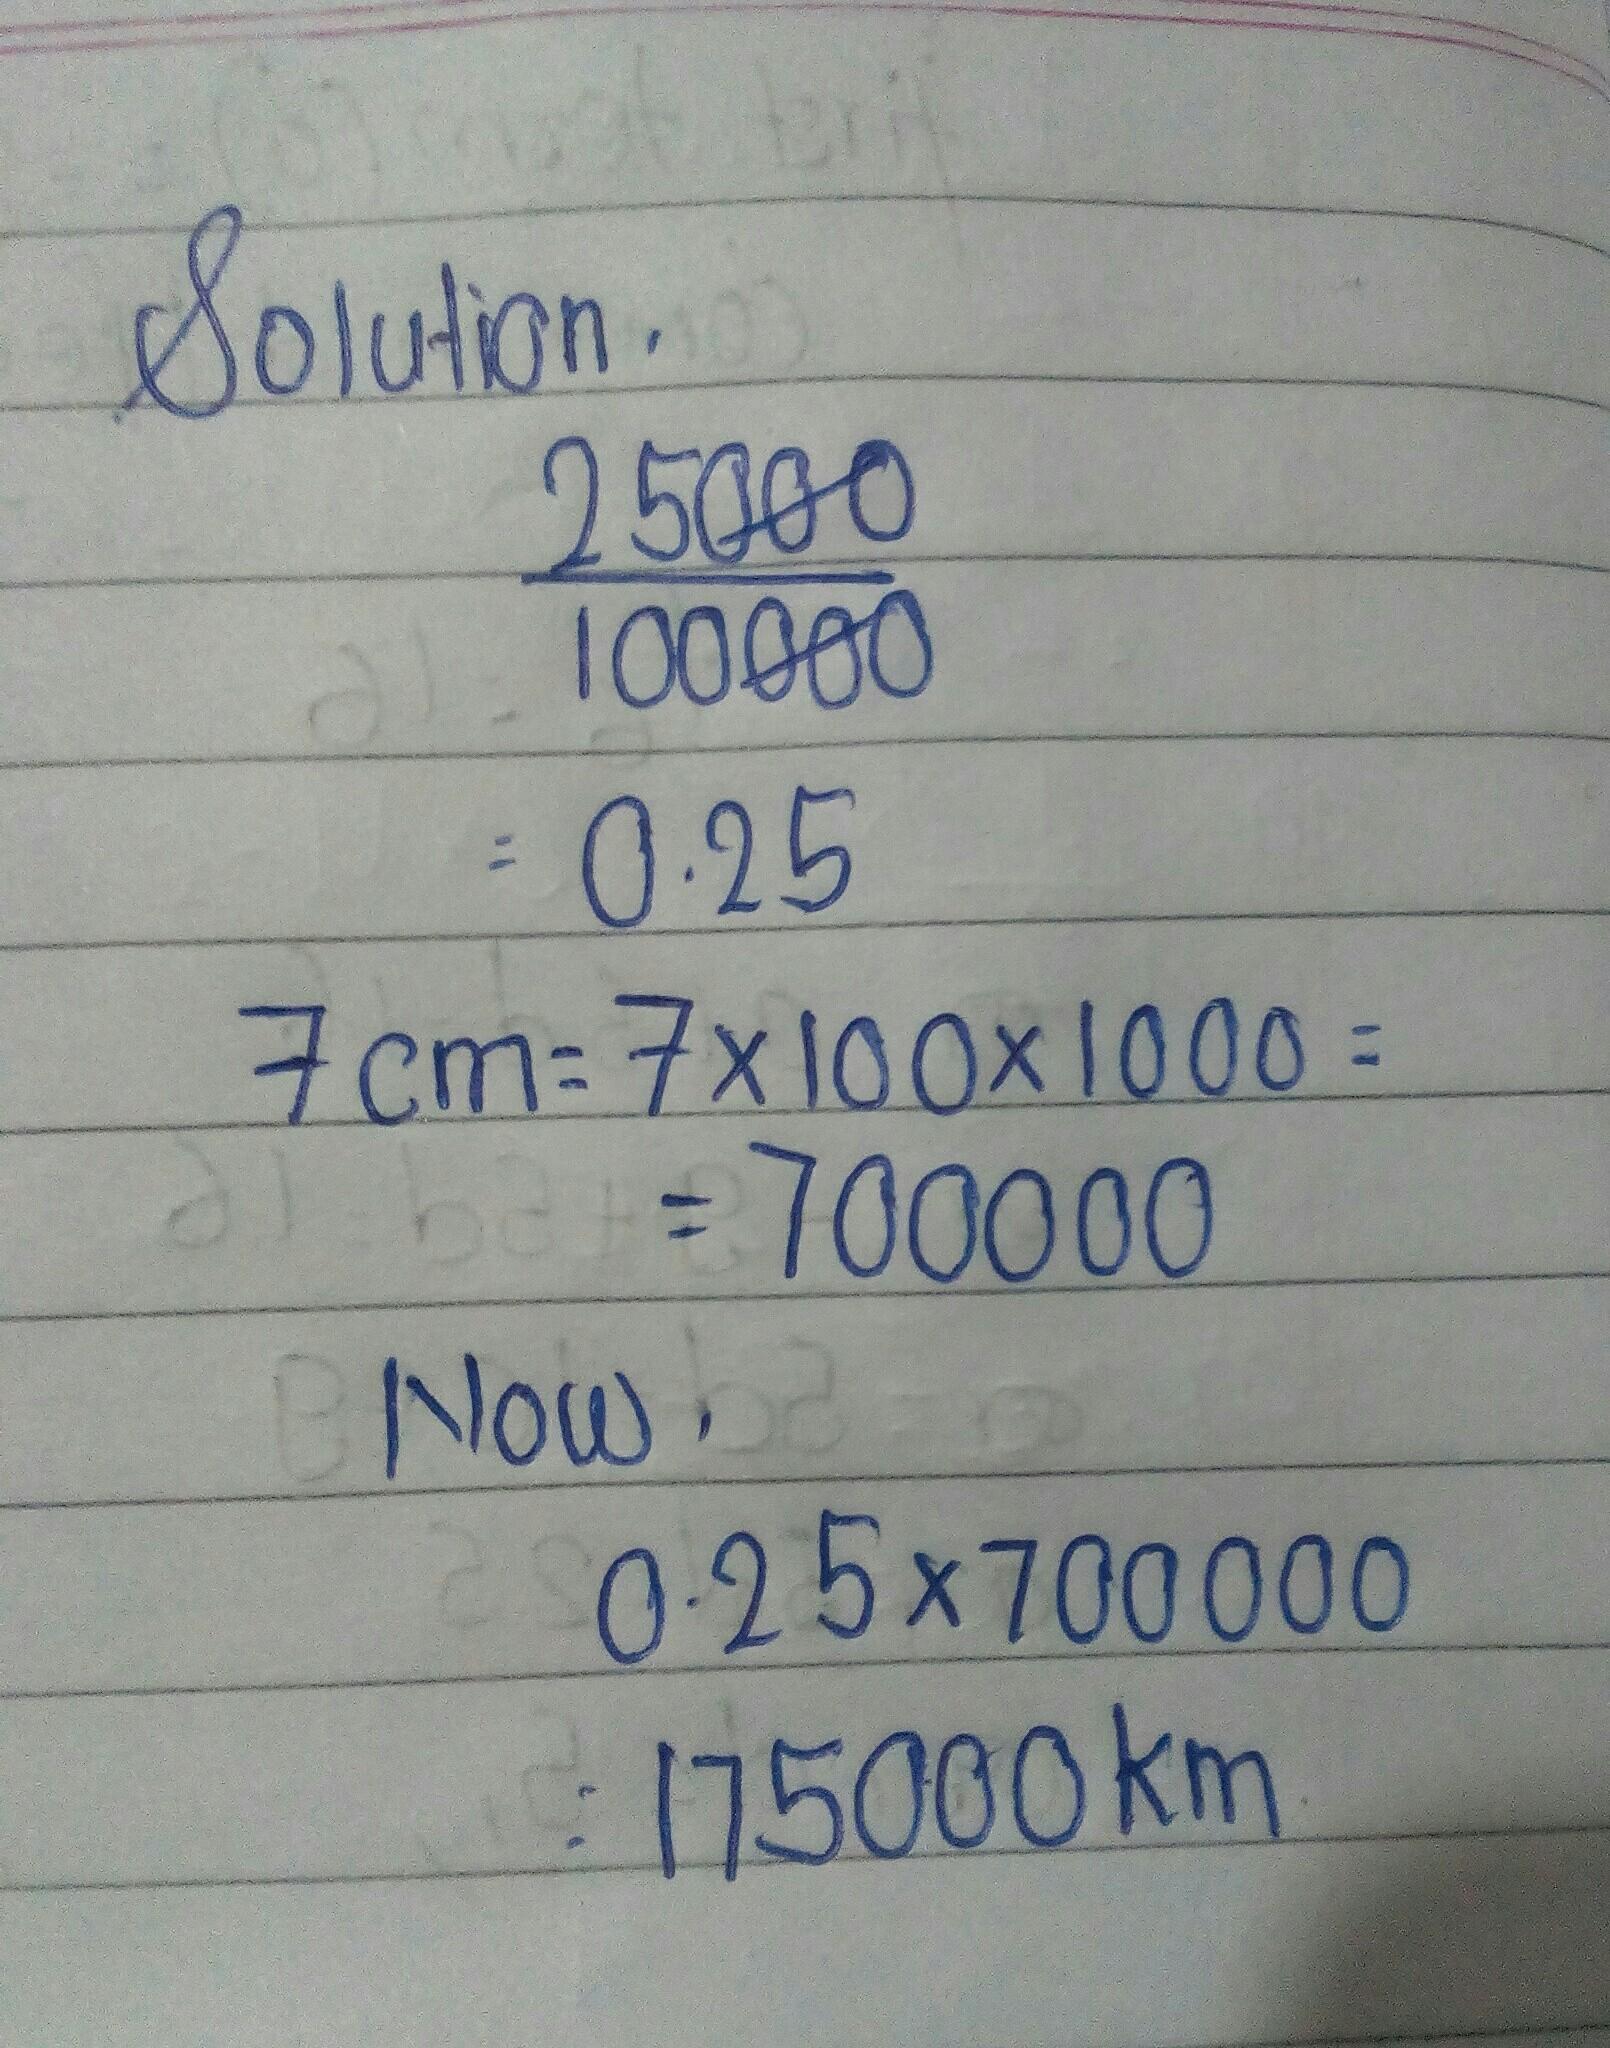 Solution.
25000
100000
= 0.25
7cm = 7x100x1000 =
= 700000
Now,
0.25x700000
= 175000km